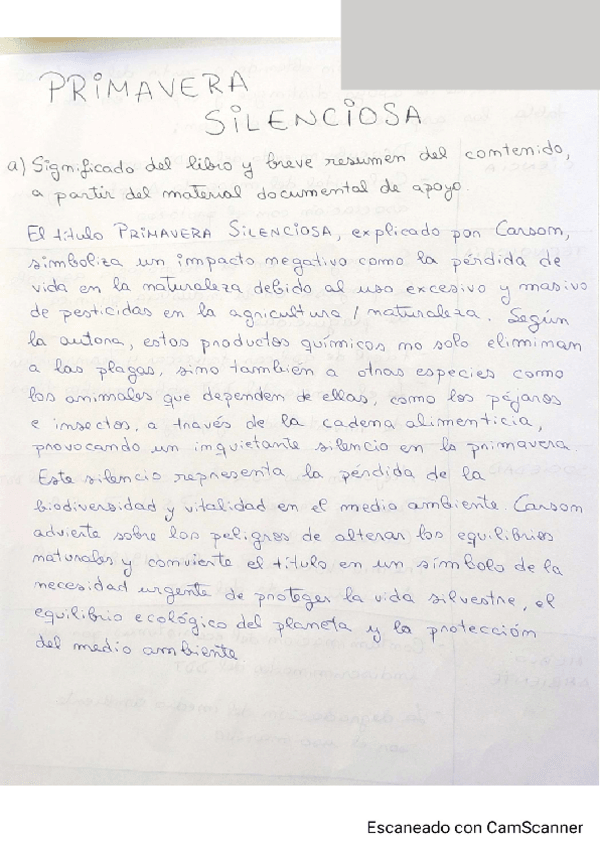 PRIMAVERA
SILENCIOSA
a) Significado del libro y breve resumen del contenido,
a partir del material documental de apoyo.
El título PRIMAVERA SILENCIOSA, explicado por Carson,
simboliza un impacto negativo como la pérdida de
vida en la naturaleza debido al uso excesivo y masivo
de pesticidas en la agricultura / naturaleza. Según
la autora, estos productos químicos no solo eliminan
a las plagas, sino también a otras especies como
los animales que dependen de ellas, como los pájaros
e insectos, a través de la cadena alimenticia,
provocando un inquietante silencio en la primavera.
Este silencio representa la pérdida de la
biodiversidad y vitalidad en el medio ambiente. Carson
advierte sobre los peligros de alterar los equilibrios
naturales y convierte el título en un símbolo de la
necesidad urgente de proteger la vida silvestre, el
equilibrio ecológico del planeta y la protección
del medio ambiente
Escaneado con CamScanner